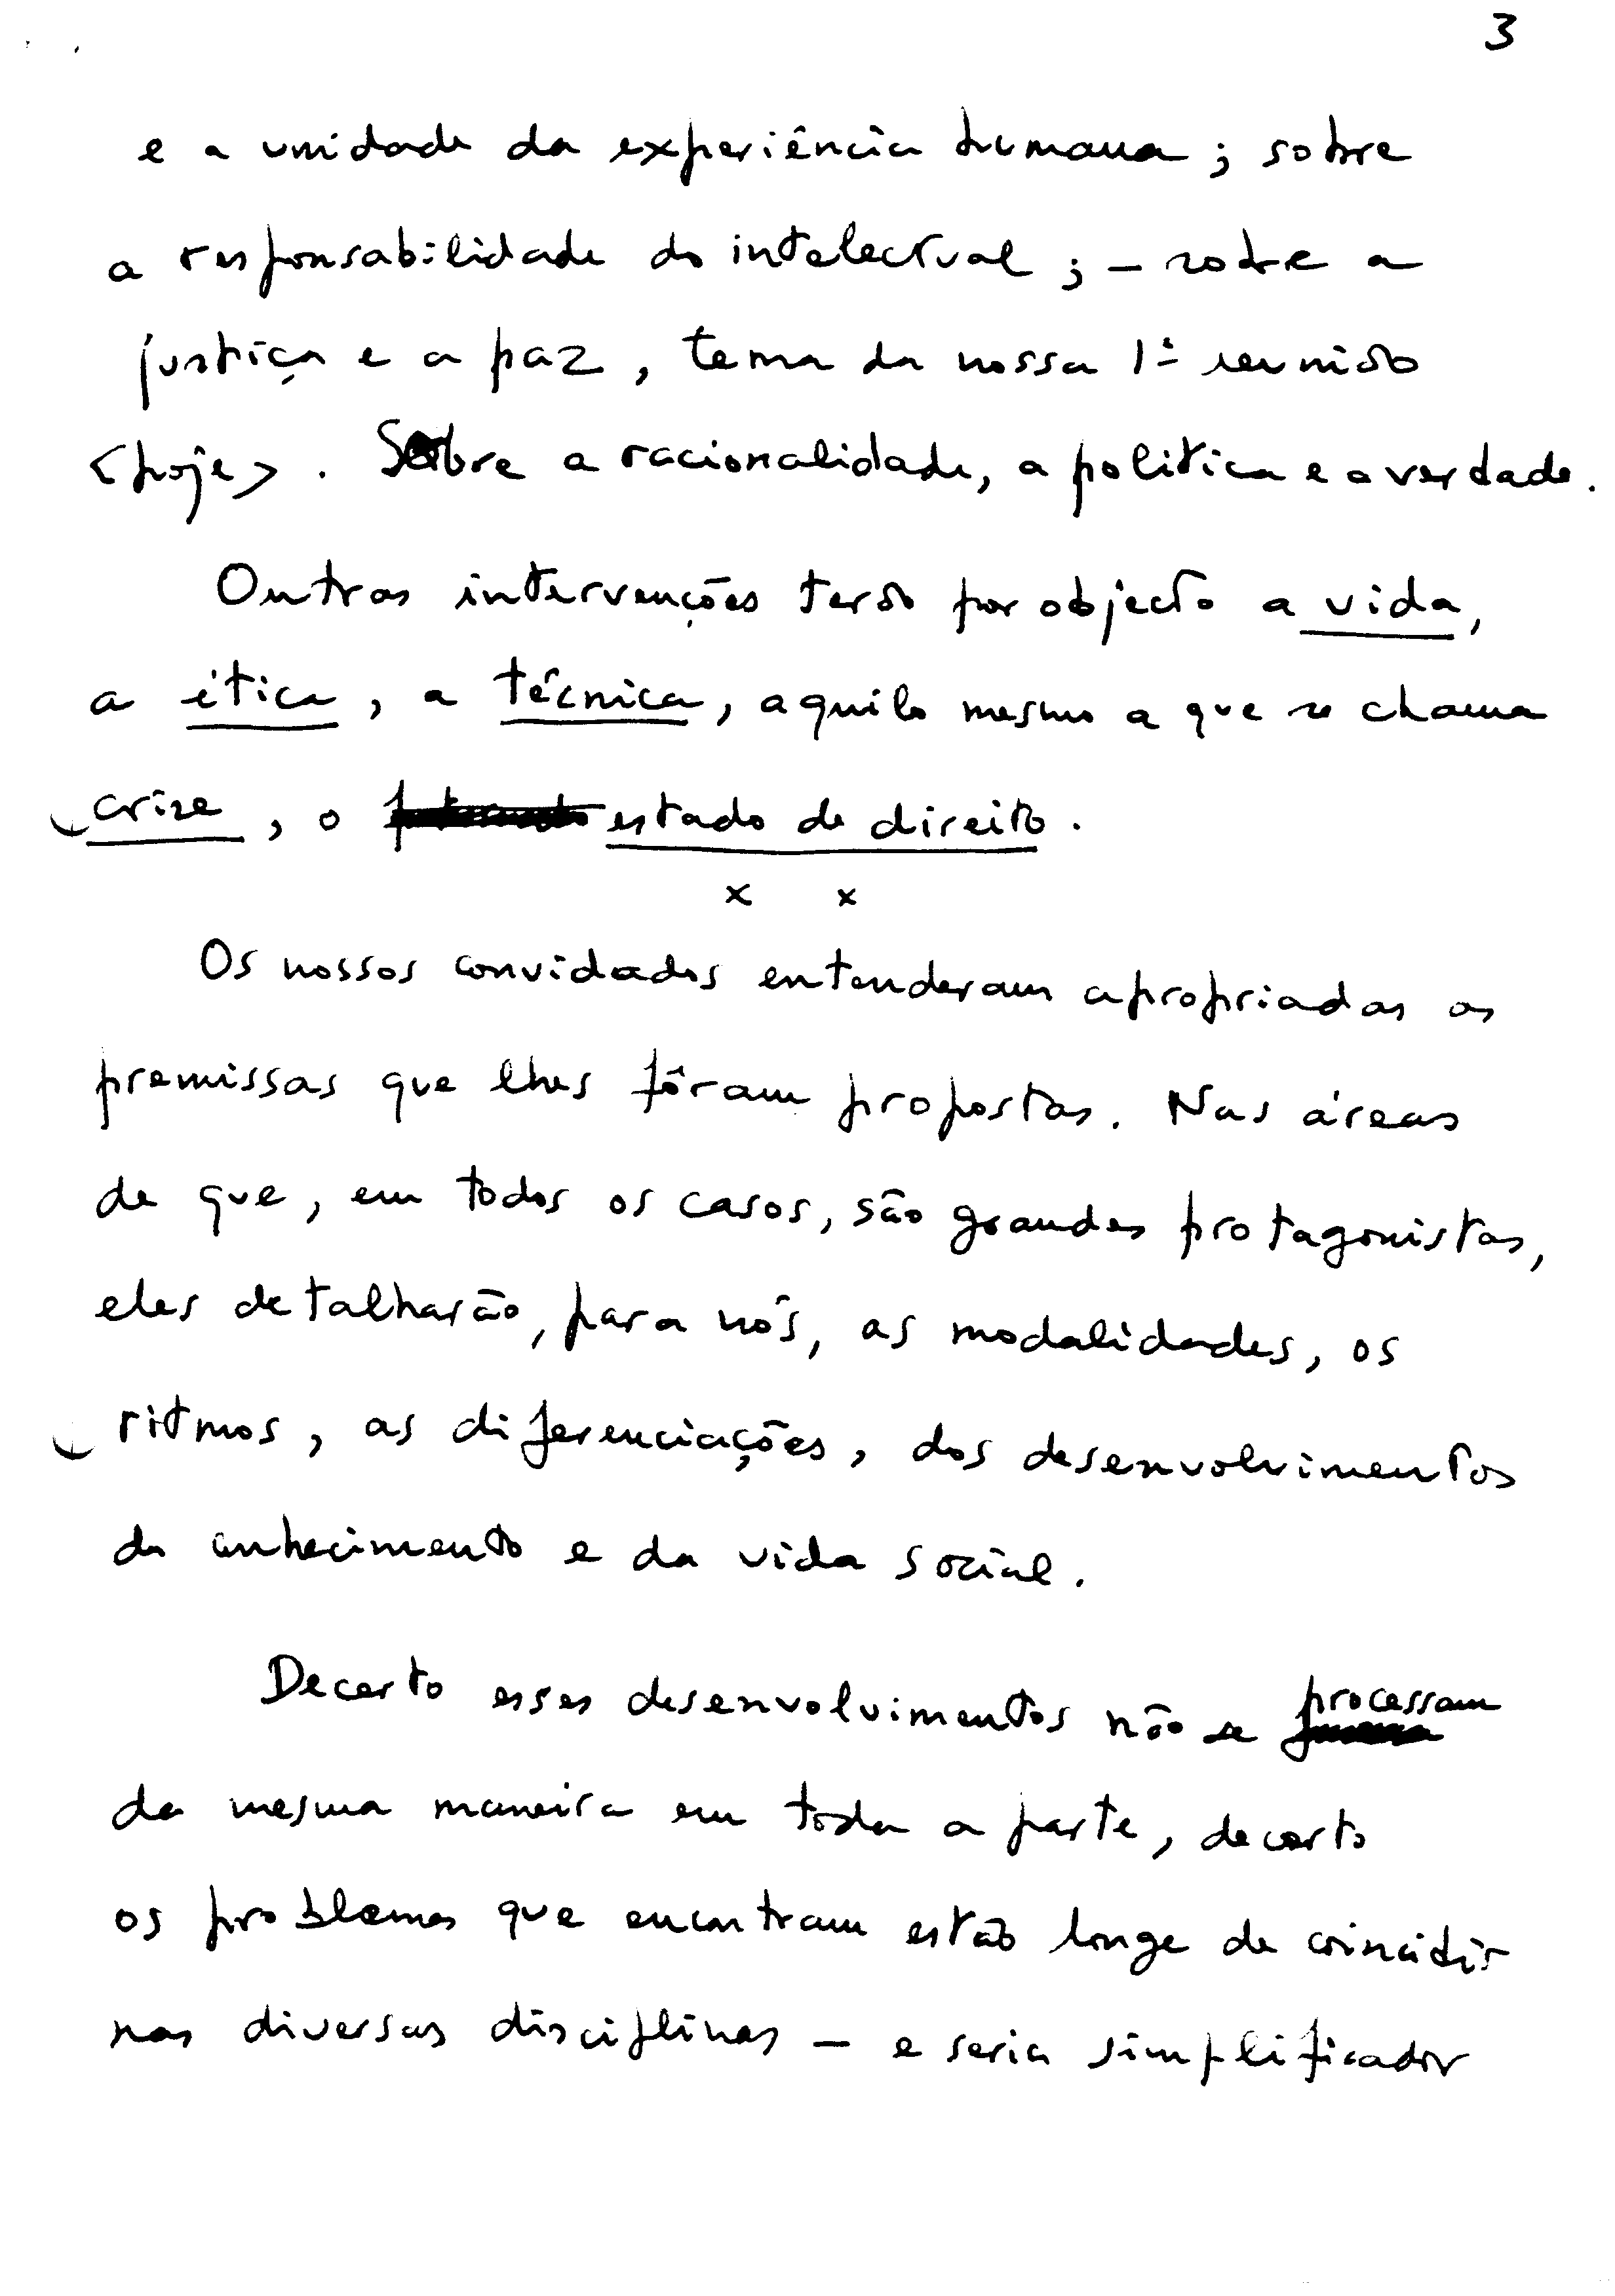 3
e a unidade da experiência humana ; sobre
a responsabilidade do intelectual ; – sobre a
justiça e a paz, tema da nossa 1ª reunião
<hoje> . Sobre a racionalidade, a politica e a verdade.
Outras intervenções terão por objecto a vida,
a ética, a técnica, aquilo mesmo a que se chama
crise, o estado de direito.
x x
Os nossos convidados entenderam apropriadas as
premissas que lhes fôram propostas. Nas áreas
de que, em todos os casos, são grandes protagonistas,
eles detalharão, para nós, as modalidades, os
ritmos, as diferenciações, dos desenvolvimentos
do conhecimento e da vida social.
Decerto esses desenvolvimentos não se processam
da mesma maneira em toda a parte, decerto
os problemas que encontram estão longe de coincidir
nas diversas disciplinas – e seria simplificador